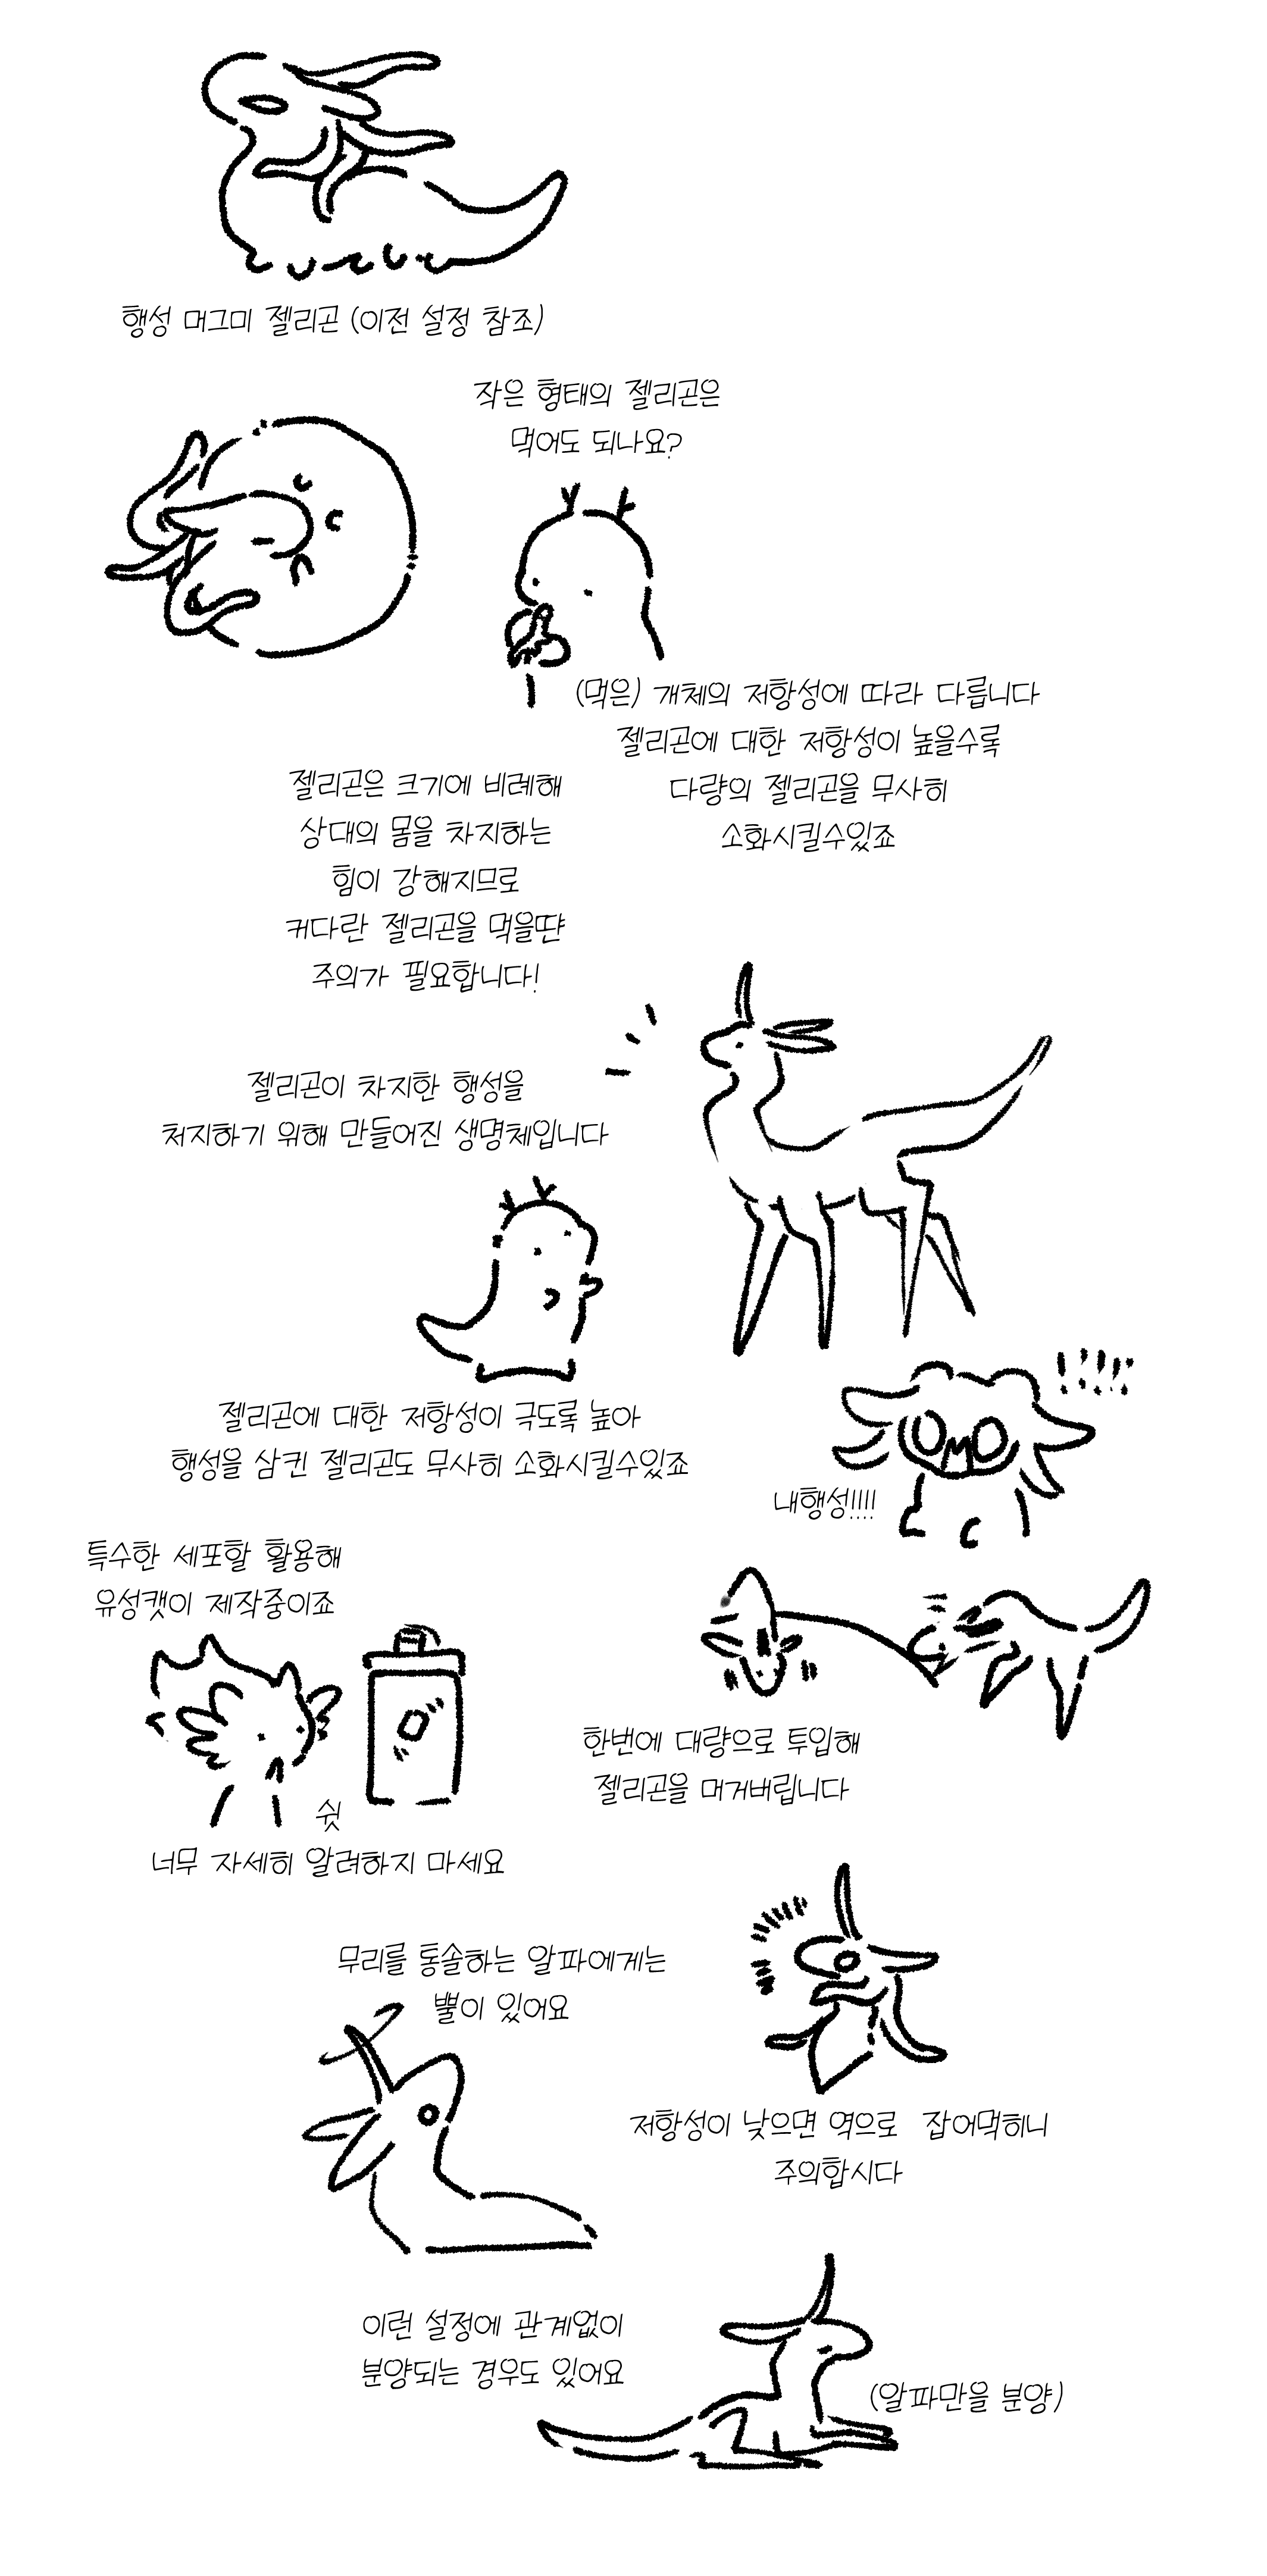 행성 머그미 젤리곤 (이전 설정 참조)
작은 형태의 젤리곤은
먹어도 되나요?
(먹은) 개체의 저항성에 따라 다릅니다
젤리곤에 대한 저항성이 높을수록
다량의 젤리곤을 무사히
소화시킬수있죠
젤리곤은 크기에 비례해
상대의 몸을 차지하는
힘이 강해지므로
커다란 젤리곤을 먹을땐
주의가 필요합니다!
젤리곤이 차지한 행성을
처지하기 위해 만들어진 생명체입니다
젤리곤에 대한 저항성이 극도록 높아
행성을 삼킨 젤리곤도 무사히 소화시킬수있죠
내행성!!!!
특수한 세포할 활용해
유성캣이 제작중이죠
한번에 대량으로 투입해
젤리곤을 머거버립니다
쉿
너무 자세히 알려하지 마세요
무리를 통솔하는 알파에게는
뿔이 있어요
저항성이 낮으면 역으로 잡어먹히니
주의합시다
이런 설정에 관계없이
분양되는 경우도 있어요
(알파만을 분양)